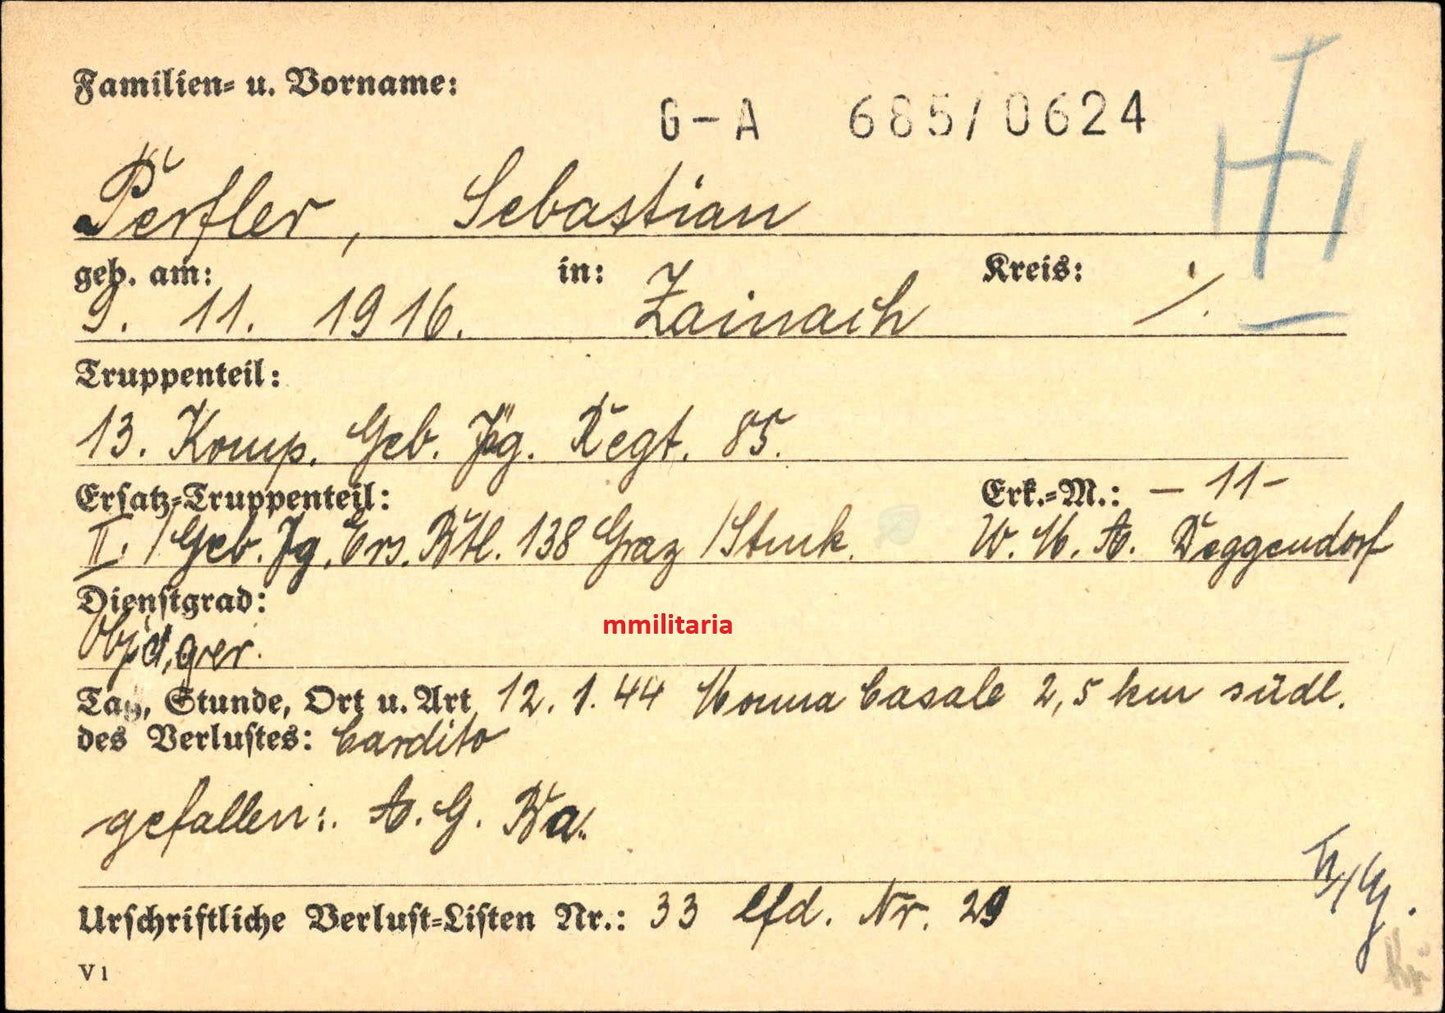 Familien- u. Vorname:
G-A 685/0624
Perfler, Sebastian
geb. am: in: Kreis:
9. 11. 1916. Zainach ./.
Truppenteil:
13. Komp. Geb. Jäg. Regt. 85.
Ersatz-Truppenteil: Erk.-M.: – 11 –
II./Geb. Jg. Ers. Btl. 138 Graz /Stmk. W. M. A. Deggendorf
Dienstgrad:
Objäger.
Tag, Stunde, Ort u. Art 12. 1. 44 Monna Casale 2,5 km südl.
des Verlustes: Cardito
gefallen: A. G. Ba.
Urschriftliche Verlust-Listen Nr.: 33 lfd. Nr. 29
V 1
mmilitaria